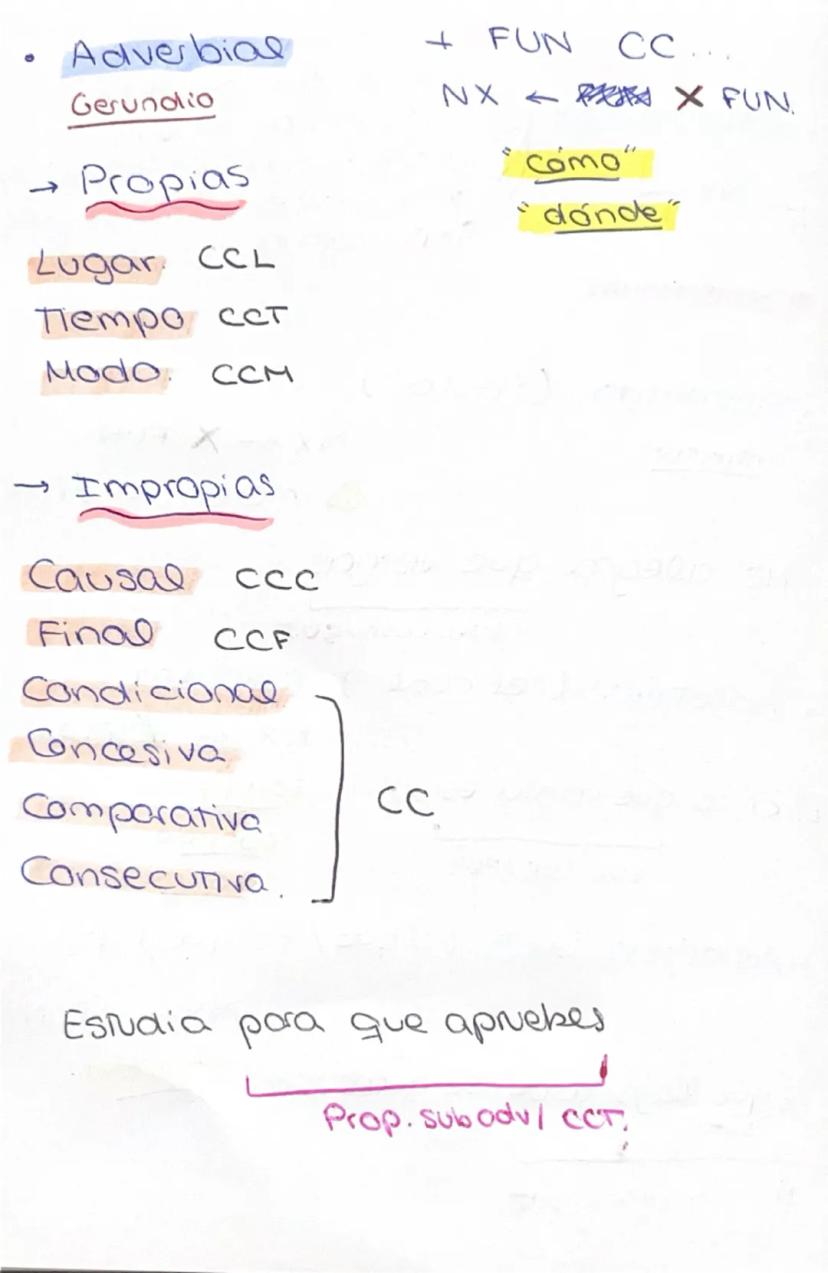 • Adverbial + FUN CC...
Gerundio NX ← X FUN.
→ Propias "cómo"
"dónde"
Lugar. CCL
Tiempo CCT
Modo. CCM
→ Impropias
Causal CCC
Final CCF
Condicional
Concesiva
Comparativa CC
Consecutiva.
Estudia para que apruebes
Prop. sub adv/ CCT.